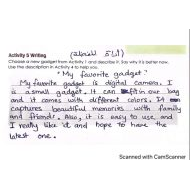 Activity 5 Writing
Choose a new gadget from Activity 1 and describe it. Say why it is better now.
Use the description in Activity 4 to help you.
"My favorite gadget"
My favorite gadget is digital camera. I
is a small gadget. It can fit in our bag
and it comes with different colors. It
captures beautiful memories with family
and friends. Also, it is easy to use, and
I really like it and hope to have the
latest one.
Scanned with CamScanner